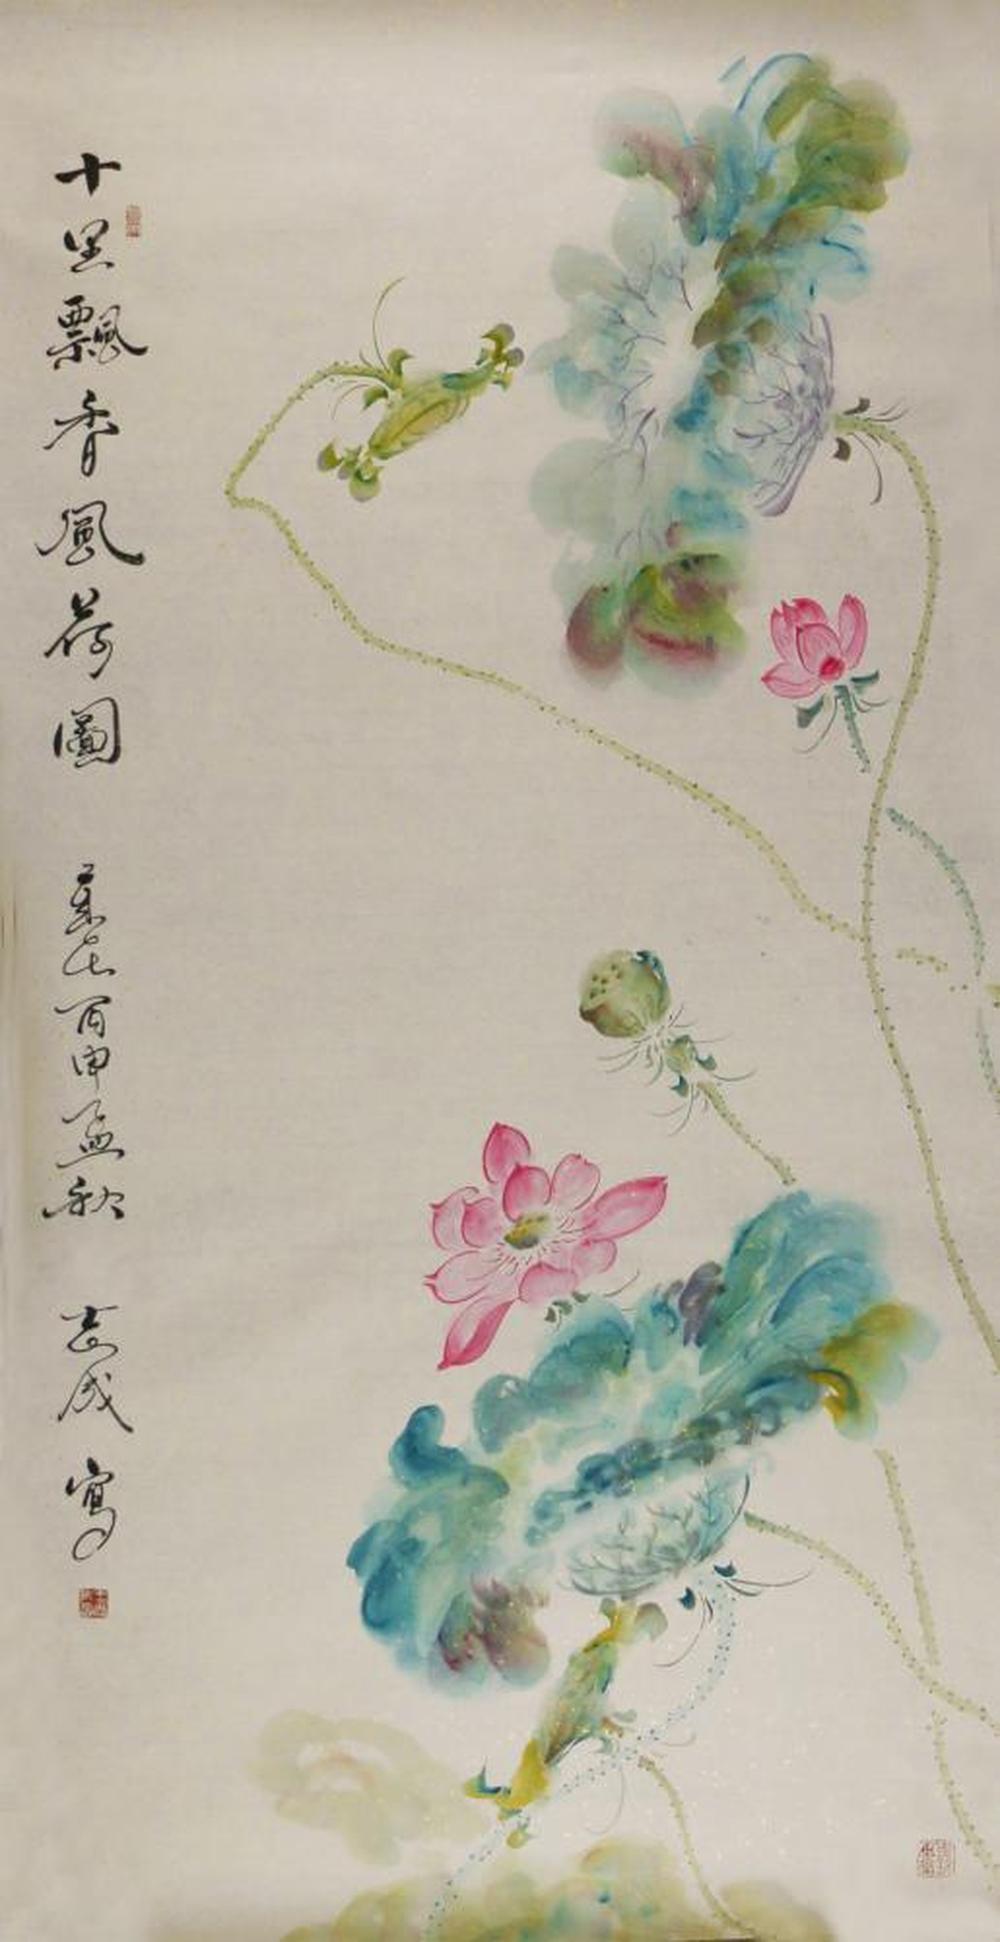 十里飄香風荷圖
歲在丙申孟秋
志成寫